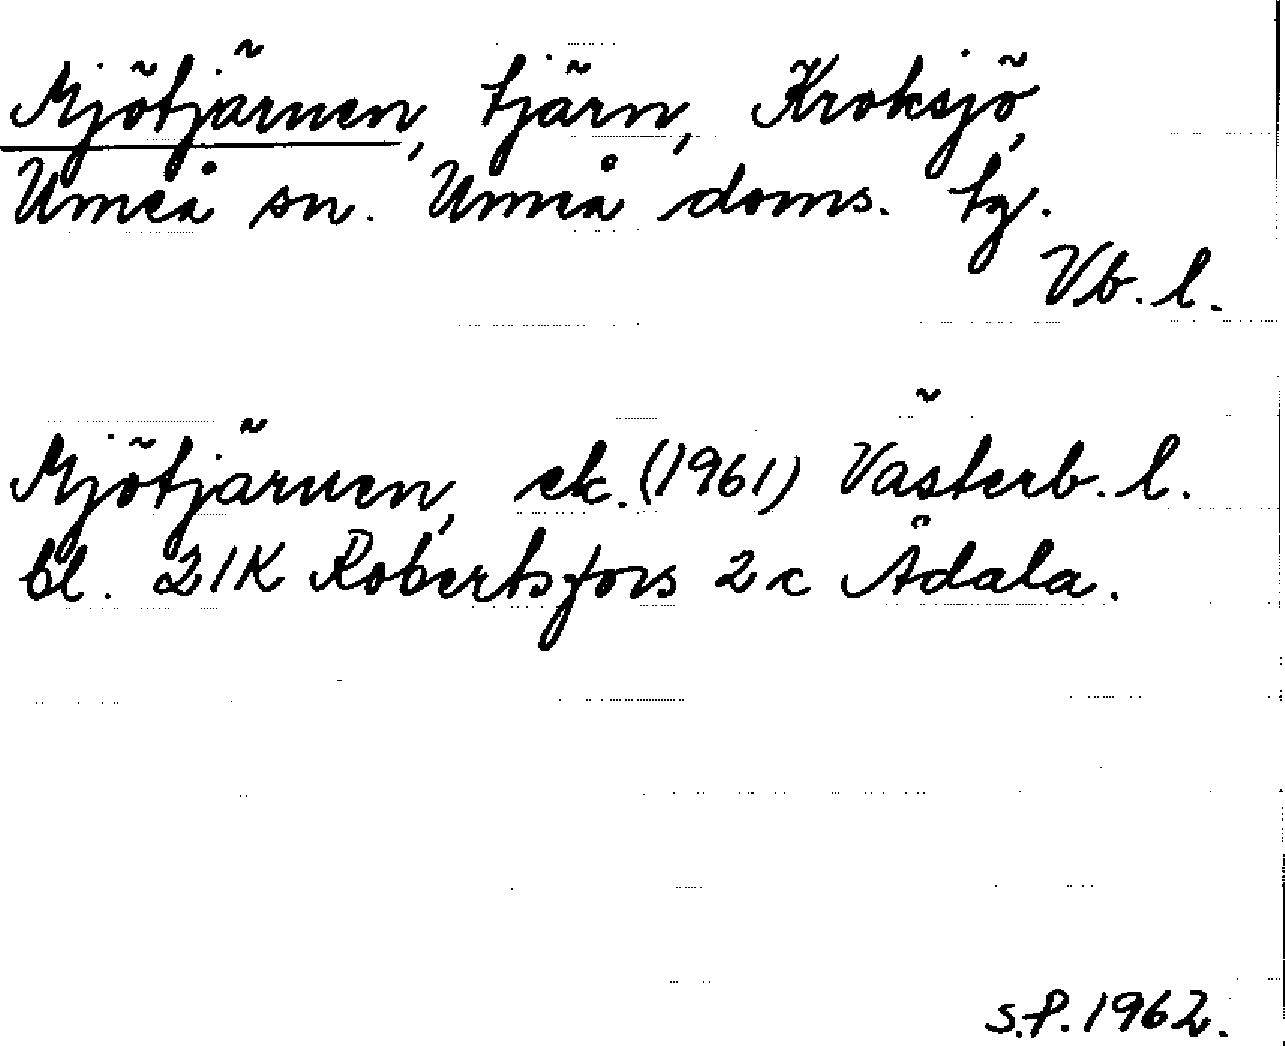 Mjötjärnen, tjärn, Kroksjö,
Umeå sn. Umeå doms. tg.
Vb. l.
Mjötjärnen, ek. (1961) Västerb. l.
bl. 21K Robertsfors 2 c Ådala.
S.P. 1962.